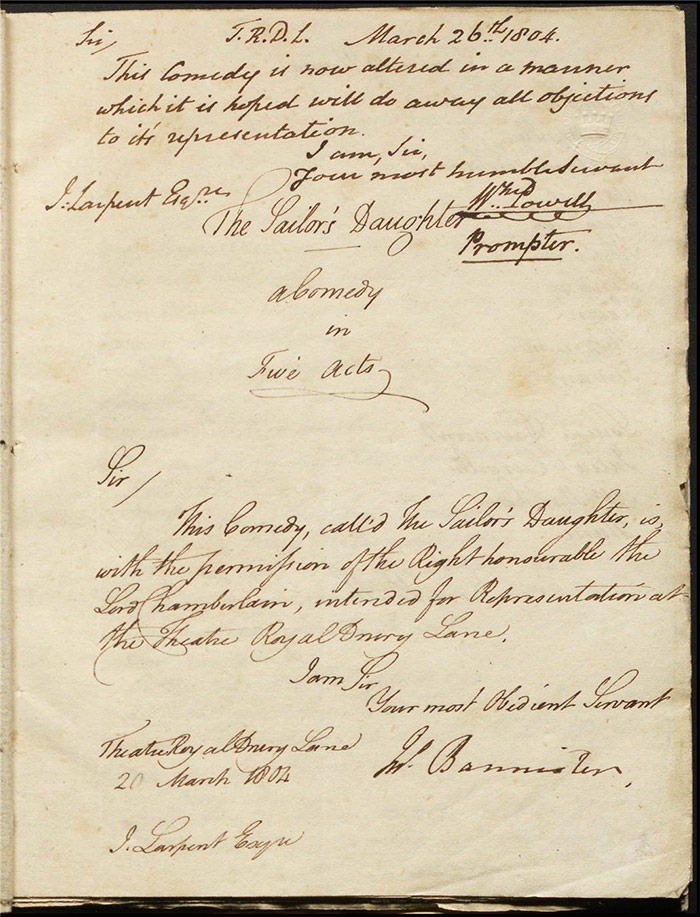 Sir/ T.R.D.L. March 26.th 1804.
This Comedy is now altered in a manner
which it is hoped will do away all objections
to it's representation.
I am, Sir,
Your most humble Servant
J. Larpent Esq.re
Wm Powell
The Sailor's Daughter
Prompter.
a Comedy
in
Five Acts
Sir/
This Comedy, call'd The Sailor's Daughter, is,
with the permission of the Right honourable the
Lord Chamberlain, intended for Representation at
the Theatre Royal Drury Lane.
I am Sir
Your most Obedient Servant
Theatre Royal Drury Lane
20 March 1804
Jn. Bannister.
J. Larpent Esqre